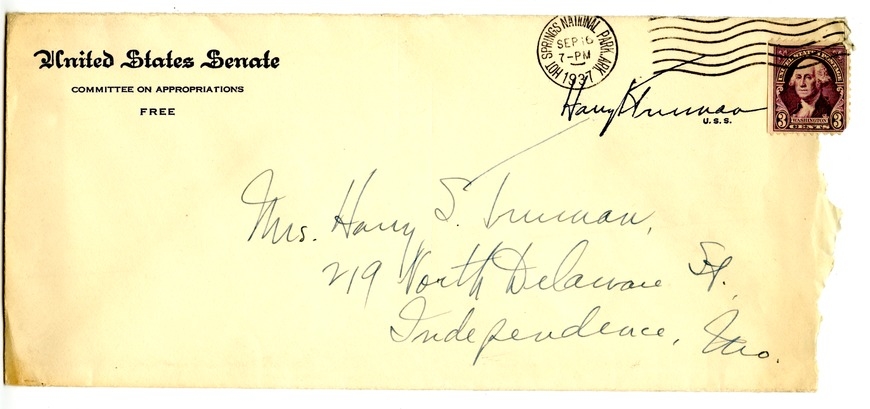 United States Senate
COMMITTEE ON APPROPRIATIONS
FREE
HOT SPRINGS NATIONAL PARK, ARK.
SEP 16
7-PM
1937
Harry S Truman
U.S.S.
UNITED STATES POSTAGE
3 WASHINGTON 3
Mrs. Harry S. Truman,
219 North Delaware St.
Independence, Mo.